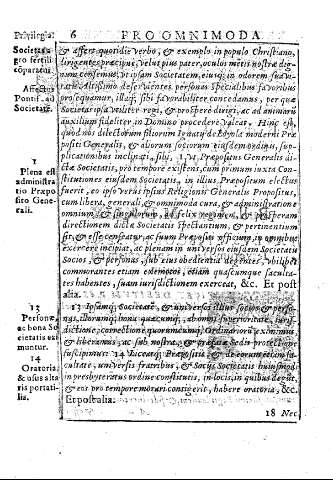 Privilegia. 6 PRO OMNIMODA
Societas
gro fertili
cōparata.
Affectus
Pontif. ad
Societatē.
& assere quotidie verbo, & exemplo in populo Christiano,
dirigentes præcipuè, velut pius pater, oculos mētis nostræ dig-
num censemus, vt ipsam Societatem, eiusq; in odorem suaui-
tatis Altissimo deseruientes personas specialibus fauoribus
prosequamur, illaq; sibi fauorabiliter concedamus, per quæ
Societas ipsa salubriter regi, & prosperè dirigi, ac ad animarū
auxilium fideliter in Domino procedere valeat. Hinc est,
quod nos dilectorum filiorum Ignatij de Loyola moderni Præ-
positi Generalis, & aliorum sociorum eiusdem domus, sup-
plicationibus inclinati,
1
Plena est
administra
tio Præpo
sito Gene-
rali.
Præpositus Generalis di-
ctæ Societatis, pro tempore existens, cum primum iuxta Con-
stitutiones eiusdem Societatis, in illius Præpositum electus
fuerit, eo ipso verus ipsius Religionis Generalis Præpositus,
cum libera, generali, & omnimoda cura, & administratione
omnium & singulorum, ad felix regimen, & prosperam
directionem dictæ Societatis spectantium, & pertinentium
sit, & esse censeatur, ac suum Præpositi officium, in omnibus
exercere incipiat, ac plenam in vniuersos eiusdem Societatis
Socios, & personas, sub eius obedientia degentes, vbilibet
commorantes etiam exemptos, etiam quascumque faculta-
tes habentes, suam iurisdictionem exerceat, &c. Et post
alia.
13
Personæ,
ac bona So
cietatis exi
muntur.
14
Oratoria,
& usus alta
ris portati-
lia.
13 Ipsamq; Societatē, & vniuersos illius socios & perso-
nas, illorumq; bona quæcumq; ab omni superioritate, iuris-
dictione, correctione quorumcumq; Ordinariorū eximimus
& liberamus, ac sub nostra, & præfatæ Sedis protectione
suscipimus. 14 Liceatq; Præposito & de eorum etiam fa-
cultate, vniuersis fratribus, & Socijs Societatis huiusmodi
in presbyteratus ordine constitutis, in locis, in quibus degūt,
& eos pro tempore morari contigerit, habere oratoria, &c.
Et post alia:
18 Nec